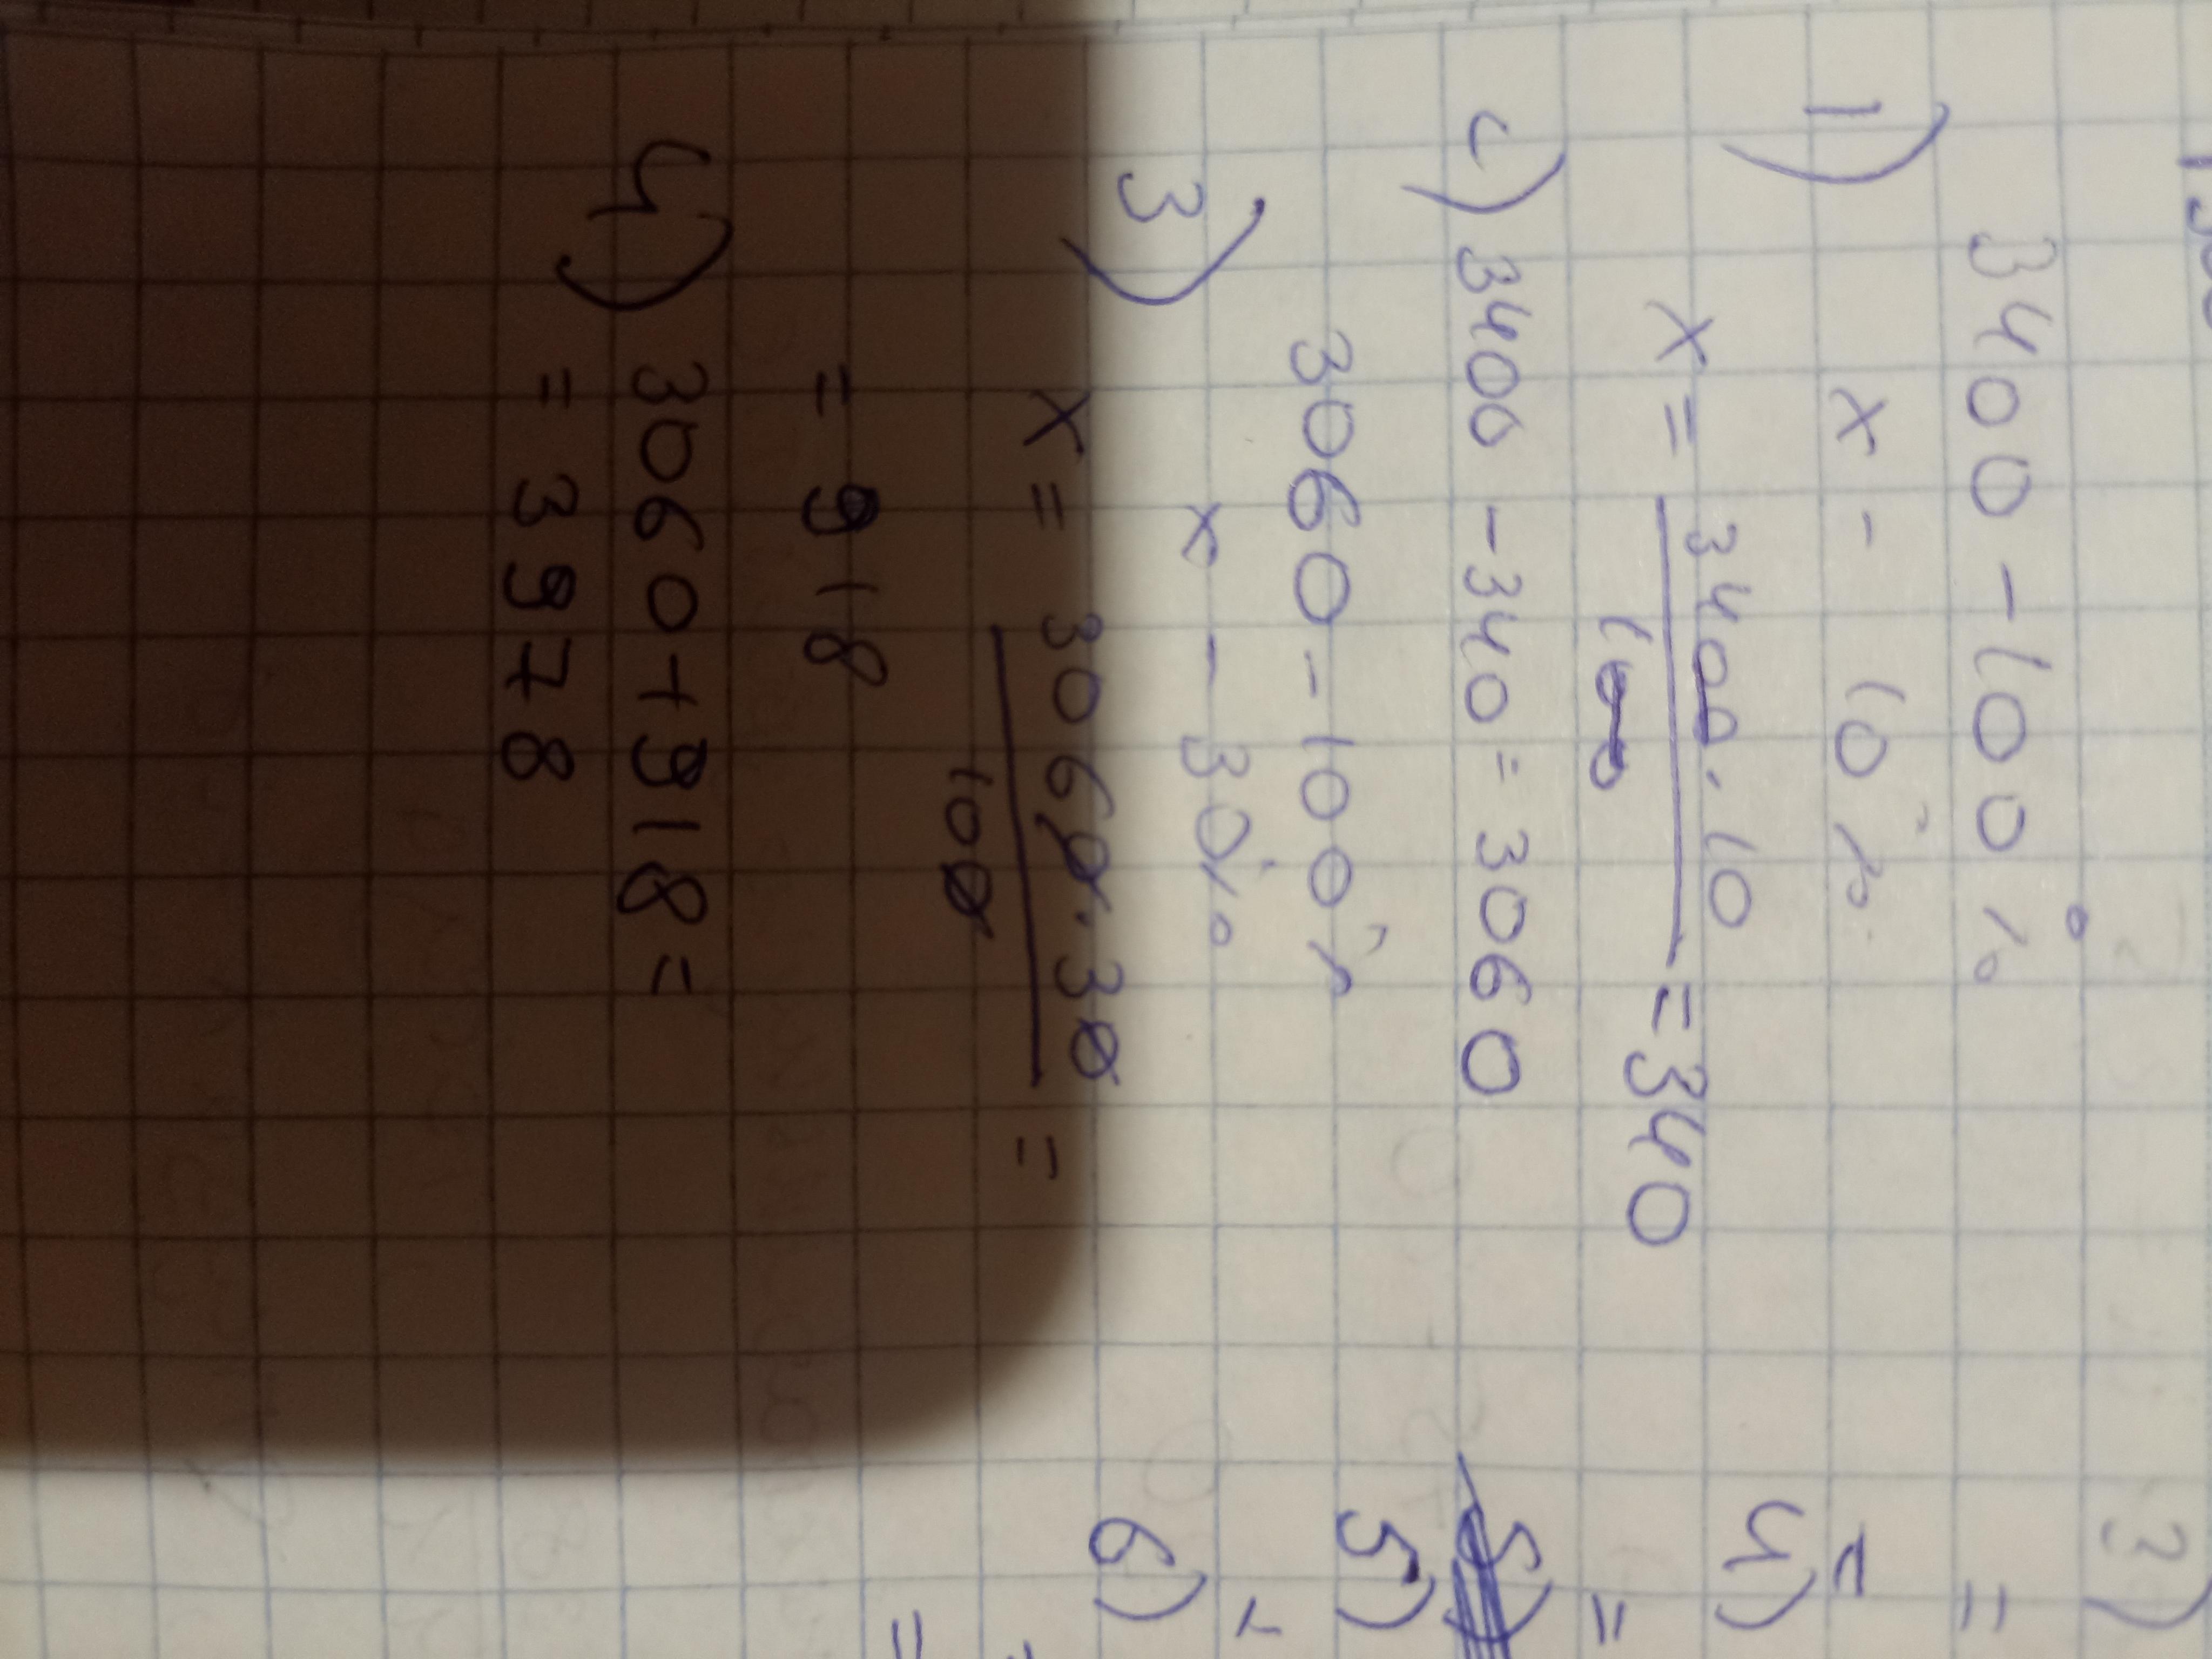 3400 - 100%
1) x - 10%
x = 3400 · 10 / 100 = 340
2) 3400 - 340 = 3060
3060 - 100%
3) x - 30%
x = 3060 · 30 / 100 =
= 918
4) 3060 + 918 =
= 3978
3)
=
=
4)
=
5)
6)
=